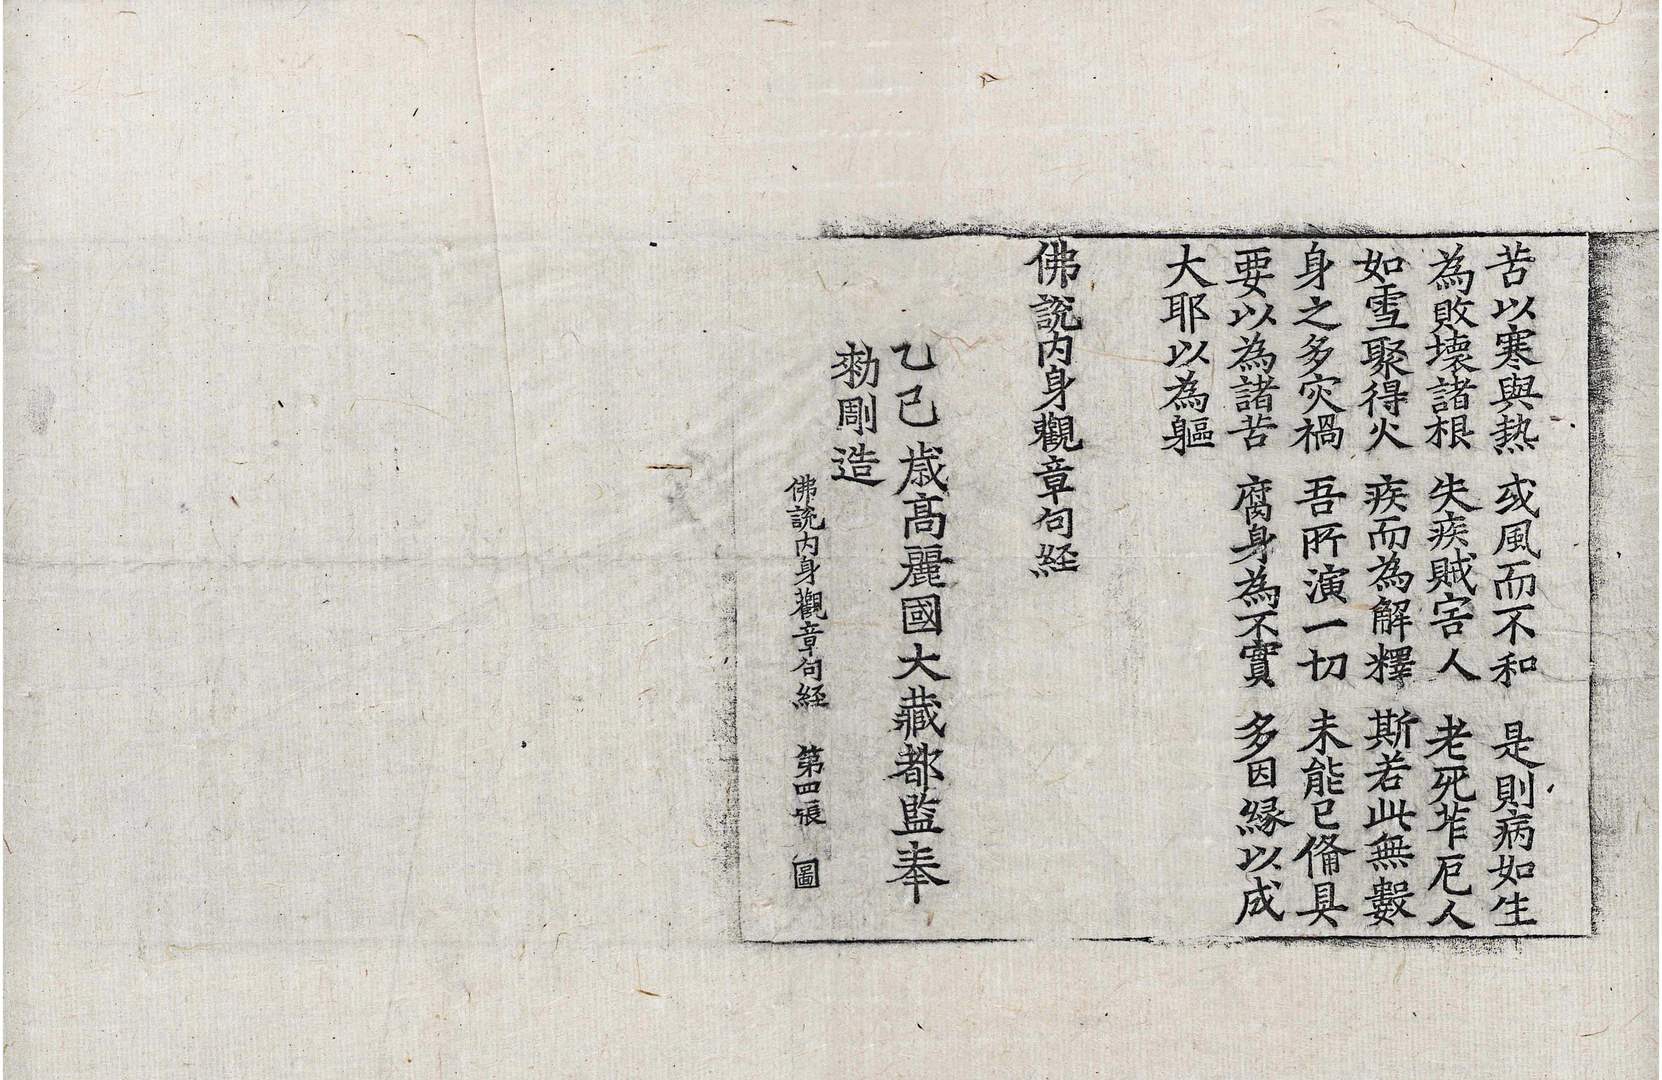 苦以寒與熱 或風而不和 是則病如生
為敗壞諸根 失疾賊害人 老死苲厄人
如雪聚得火 疾而為解釋 斯若此無數
身之多灾禍 吾所演一切 未能已俻具
要以為諸苦 腐身為不實 多因緣以成
大耶以為軀
佛說内身觀章句経
乙巳歳髙麗國大藏都監奉
勑彫造
佛說内身觀章句経 第四張 圖